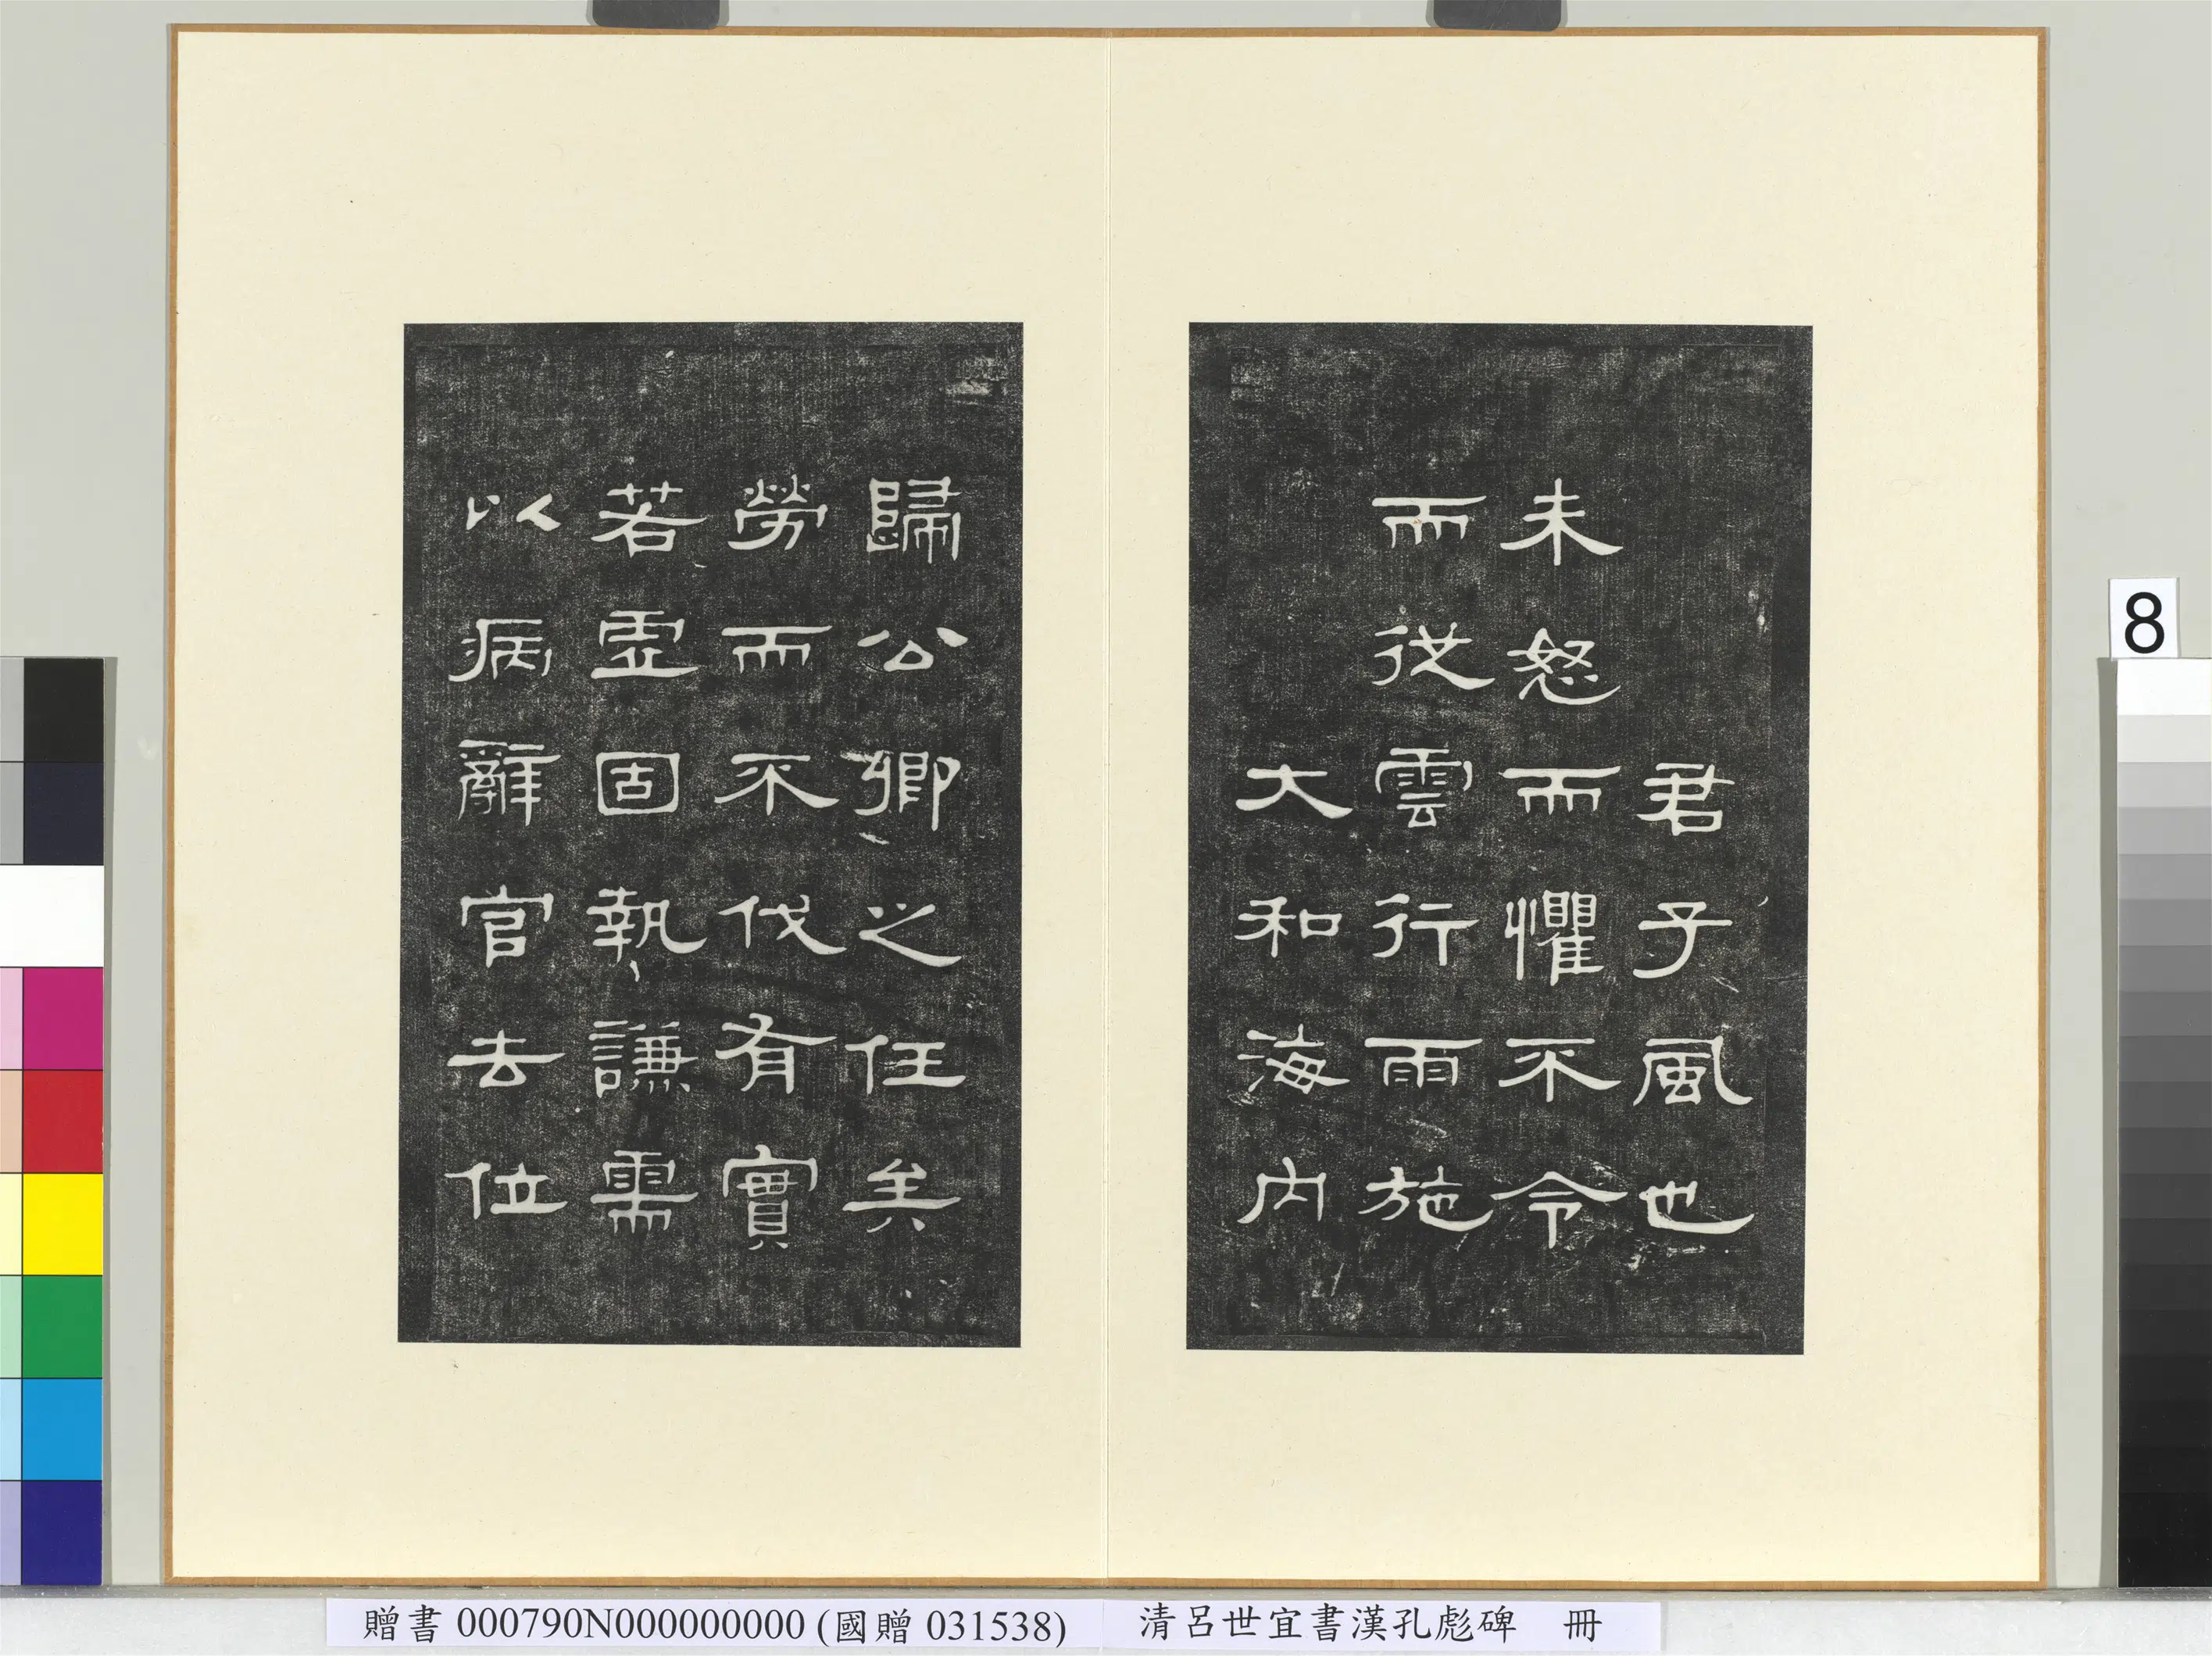 君子風也
未怒而懼不令
而從雲行雨施
大和海內
歸公卿之任矣
勞而不伐有實
若虛固執謙需
以病辭官去位
8
贈書 000790N000000000 (國贈 031538)
清呂世宜書漢孔彪碑 冊